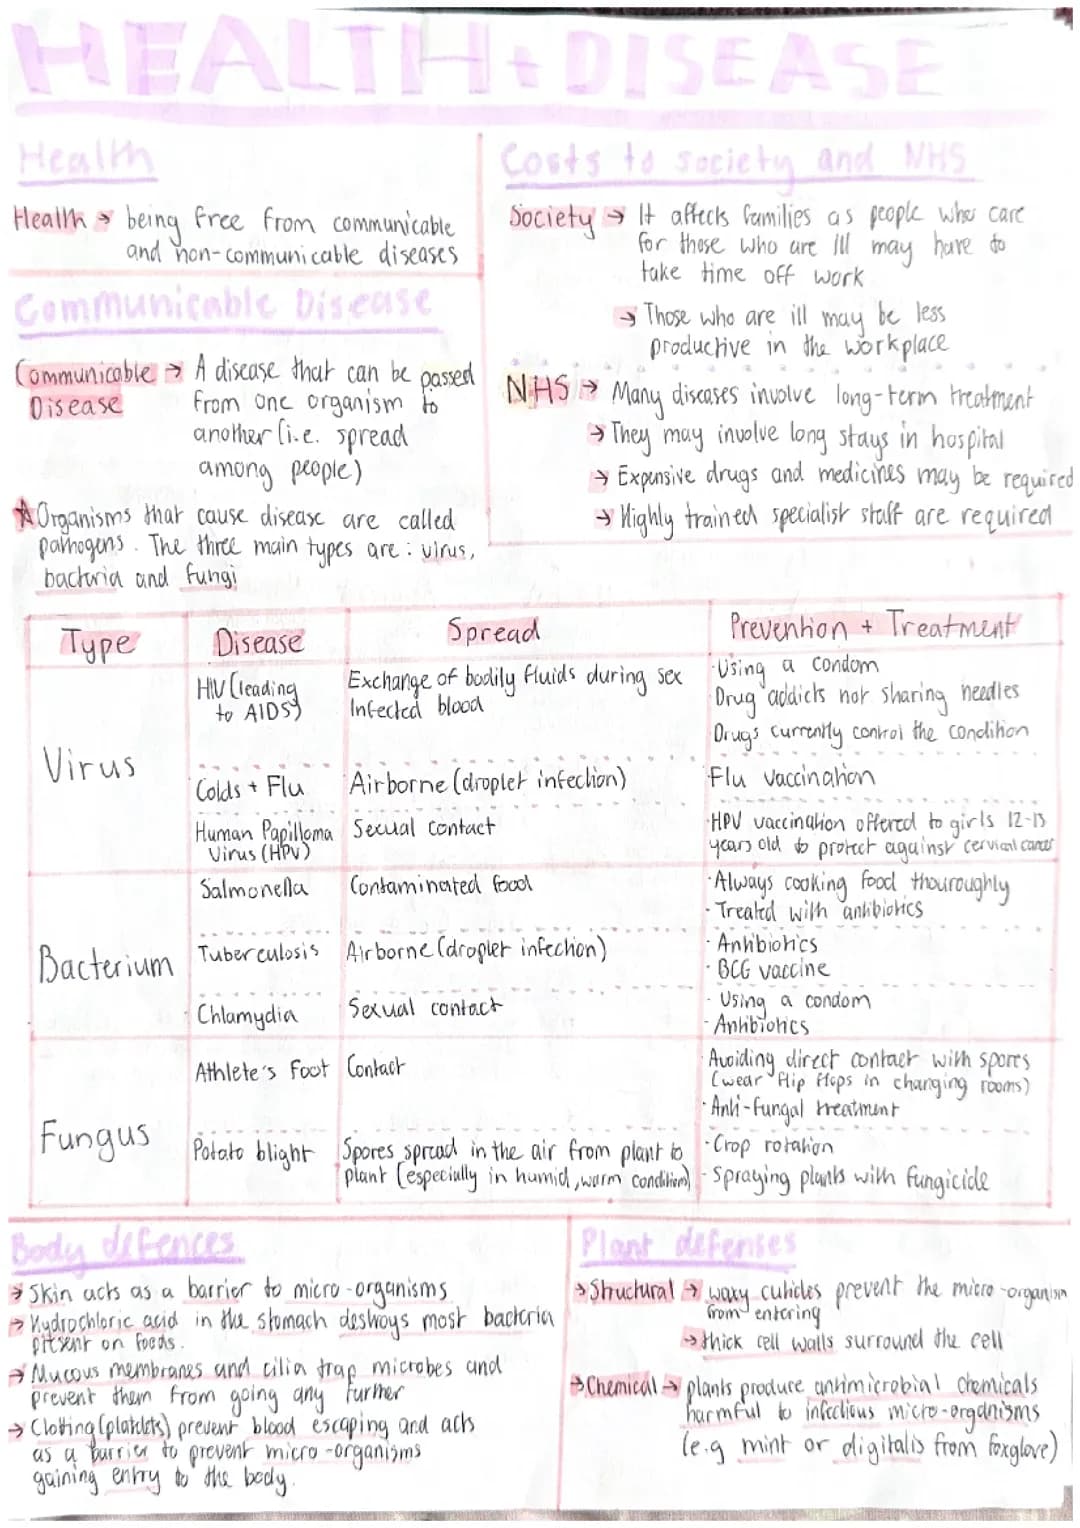 HEALTH + DISEASE
Health
Health → being free from communicable
and non-communicable diseases
Communicable Disease
Communicable → A disease that can be passed
Disease from one organism to
another (i.e. spread
among people)
★Organisms that cause disease are called
pathogens. The three main types are: virus,
bacteria and fungi
Costs to society and NHS
Society → It affects families as people who care
for those who are ill may have to
take time off work
→ Those who are ill may be less
productive in the workplace
NHS → Many diseases involve long-term treatment
→ They may involve long stays in hospital
→ Expensive drugs and medicines may be required
→ Highly trained specialist staff are required
Type Disease Spread Prevention + Treatment
Virus
HIV (leading
to AIDS)
Exchange of bodily fluids during sex
Infected blood
·Using a condom
·Drug addicts not sharing needles
Drugs currently control the condition
Colds + Flu Airborne (droplet infection) Flu vaccination
Human Papilloma
Virus (HPV)
Sexual contact
·HPV vaccination offered to girls 12-13
years old to protect against cervical cancer
Bacterium
Salmonella Contaminated food
·Always cooking food thouroughly
·Treated with antibiotics
Tuberculosis Airborne (droplet infection)
·Antibiotics
·BCG vaccine
Chlamydia Sexual contact
·Using a condom
·Antibiotics
Fungus
Athlete's Foot Contact
·Avoiding direct contact with spores
(wear flip flops in changing rooms)
·Anti-fungal treatment
Potato blight
Spores spread in the air from plant to
plant (especially in humid, warm condition)
·Crop rotation
·Spraying plants with fungicide
Body defences
→ Skin acts as a barrier to micro-organisms
→ Hydrochloric acid in the stomach destroys most bacteria
present on foods.
→ Mucous membranes and cilia trap microbes and
prevent them from going any further
→ Clotting (platelets) prevent blood escaping and acts
as a barrier to prevent micro-organisms
gaining entry to the body.
Plant defenses
→ Structural → waxy cuticles prevent the micro-organism
from entering
→ thick cell walls surround the cell
→ Chemical → plants produce antimicrobial chemicals
harmful to infectious micro-organisms
(e.g mint or digitalis from foxglove)